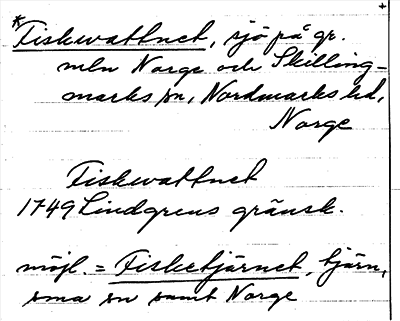 *Fiskvattnet, sjö på gr.
mln Norge och Skilling-
marks sn, Nordmarks hd,
Norge
Fiskvattnet
1749 Lindgrens gränsk.
möjl. = Fisketjärnet, tjärn,
sma sn samt Norge